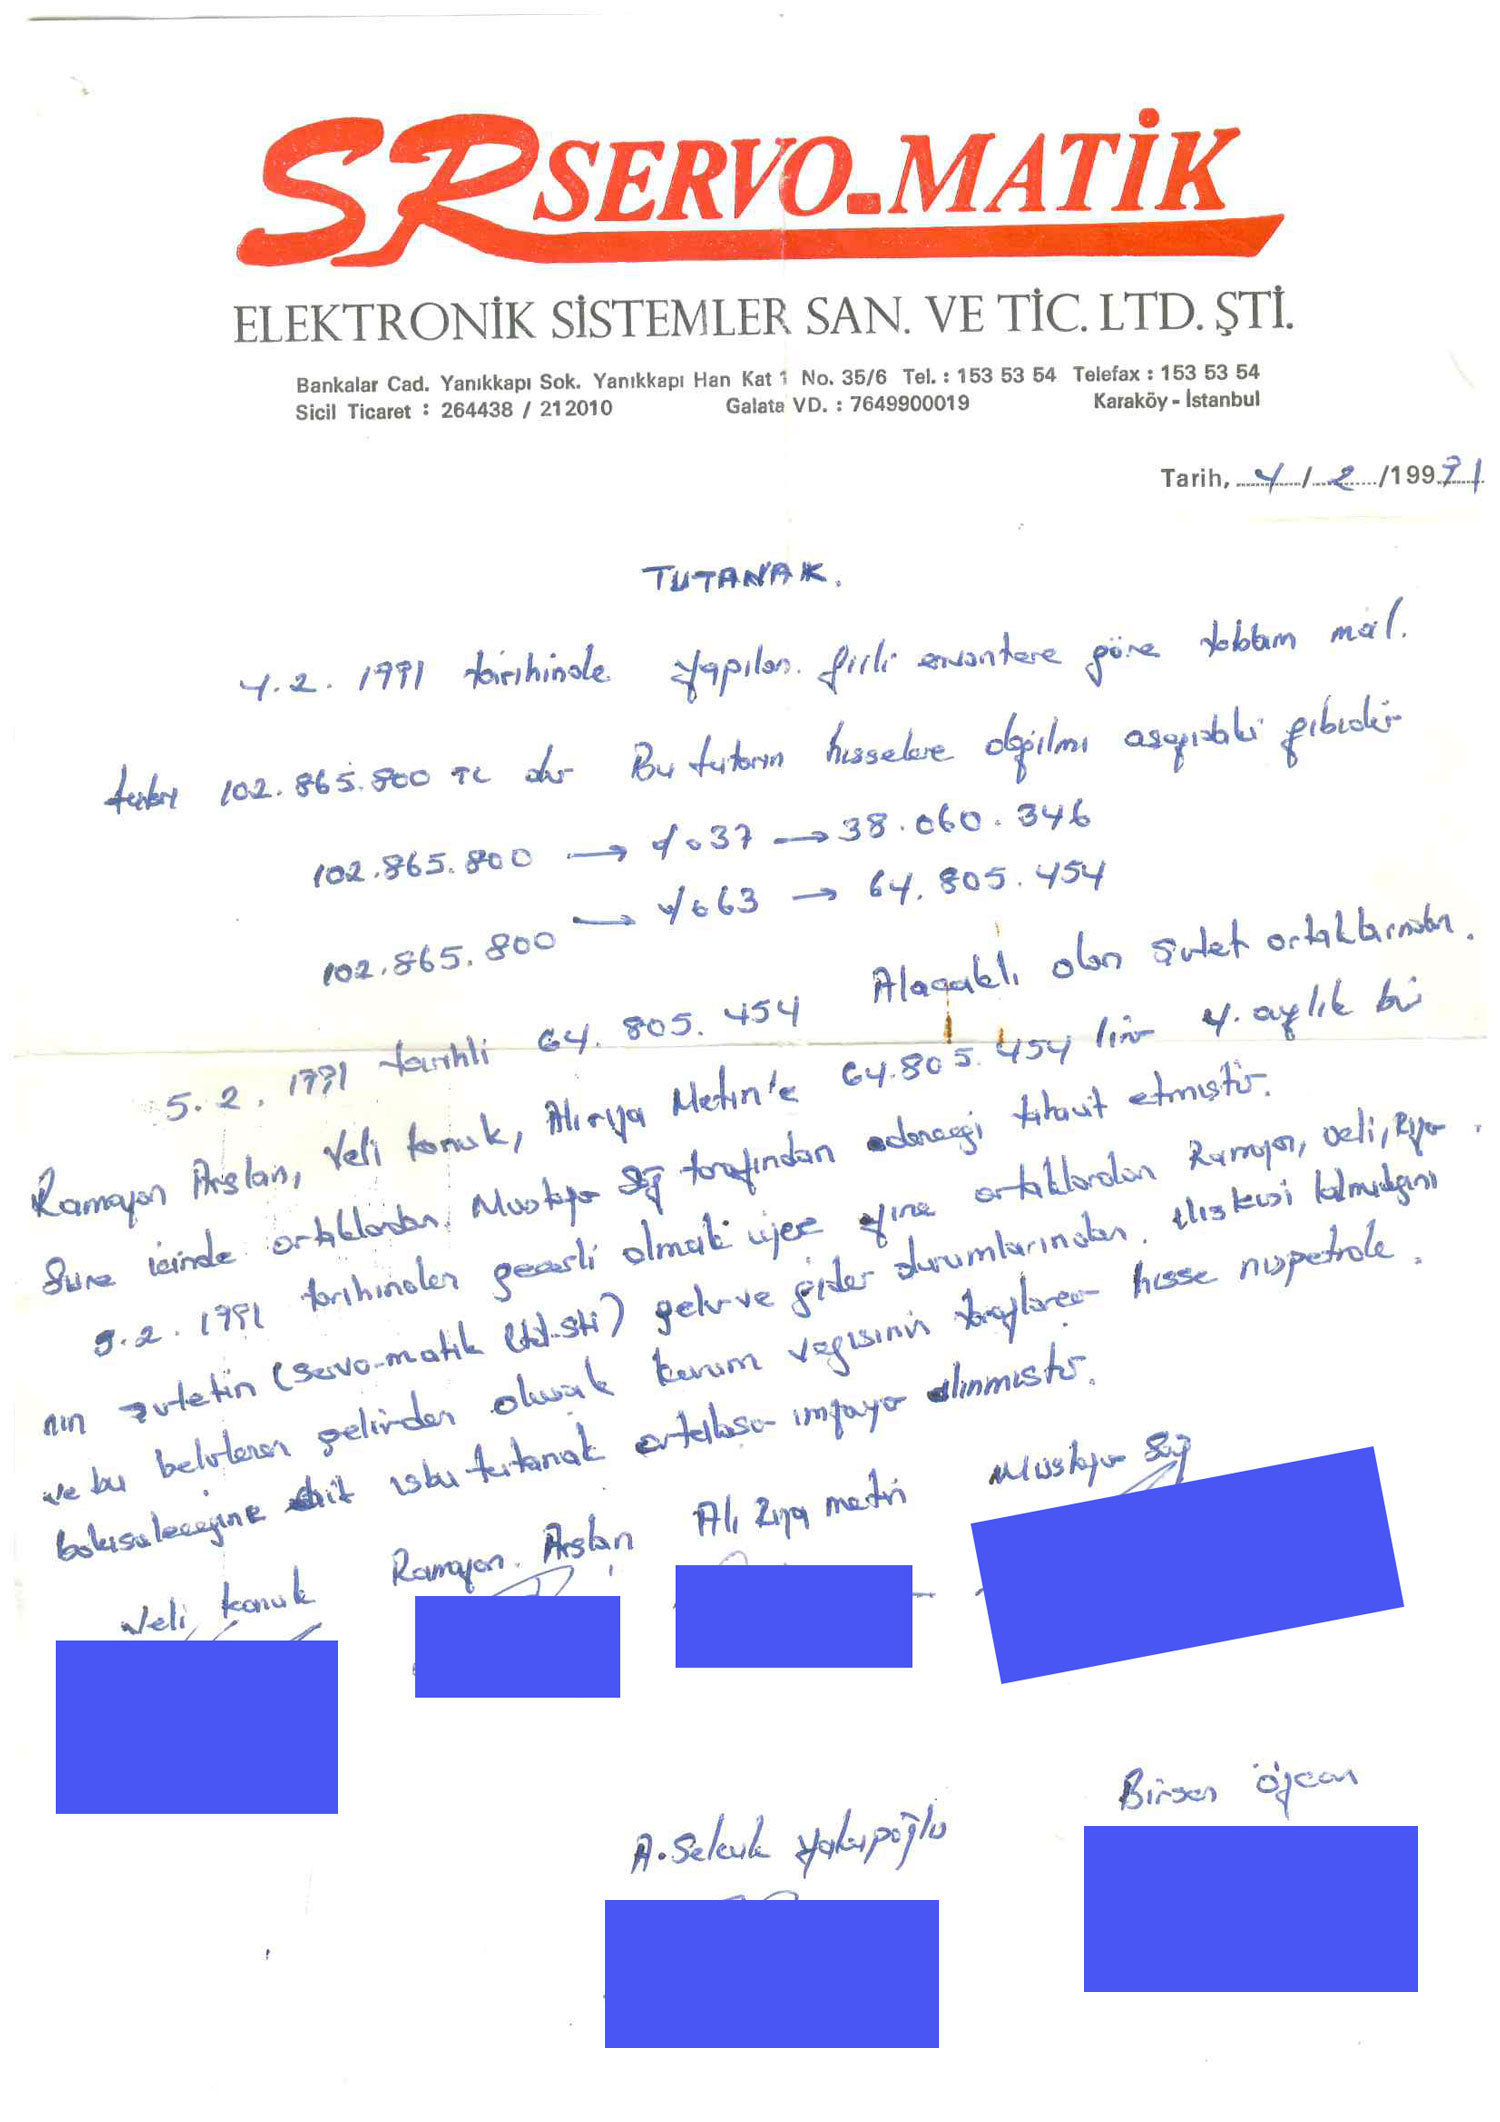 SR SERVO-MATİK
ELEKTRONİK SİSTEMLER SAN. VE TİC. LTD. ŞTİ.
Bankalar Cad. Yanıkkapı Sok. Yanıkkapı Han Kat 1 No. 35/6 Tel. : 153 53 54 Telefax : 153 53 54
Sicil Ticaret : 264438 / 212010 Galata VD. : 7649900019 Karaköy - İstanbul
Tarih, 4/2/199 91
TUTANAK.
4.2.1991 tarihinde yapılan fiili envantere göre toblam mal.
tutarı 102.865.800 TL dır Bu tutarın hisselere dağılmı aşağıdaki gibidir
102.865.800 → %37 → 38.060.346
102.865.800 → %63 → 64.805.454
5.2.1991 tarihli 64.805.454 Alacaklı olan şirket ortaklarından.
Ramazan Arslan, Veli Konuk, Ali rıza Metin'e 64.805.454 lira 4. aylık bir
Süre içinde ortaklardan Mustafa Sağ tarafından edeneceği tahaüt etmiştir.
5.2.1991 tarihinden geçerli olmak üzere yine ortaklardan Ramazan, Veli, Rıza
nın şirketin (Servo-matik ltd-Sti) gelir ve gider durumlarından. ilişkisi kalmadığını
ve bu belirlenen gelirden olucak kurum vegisinin hisse nispetnde.
işbu tutanak imzaya alınmıştır.
Veli Konuk Ramazan. Arslan Ali Rıza metin Mustafa Sağ
A. Selcuk Yakupoğlu Birsen Özcan